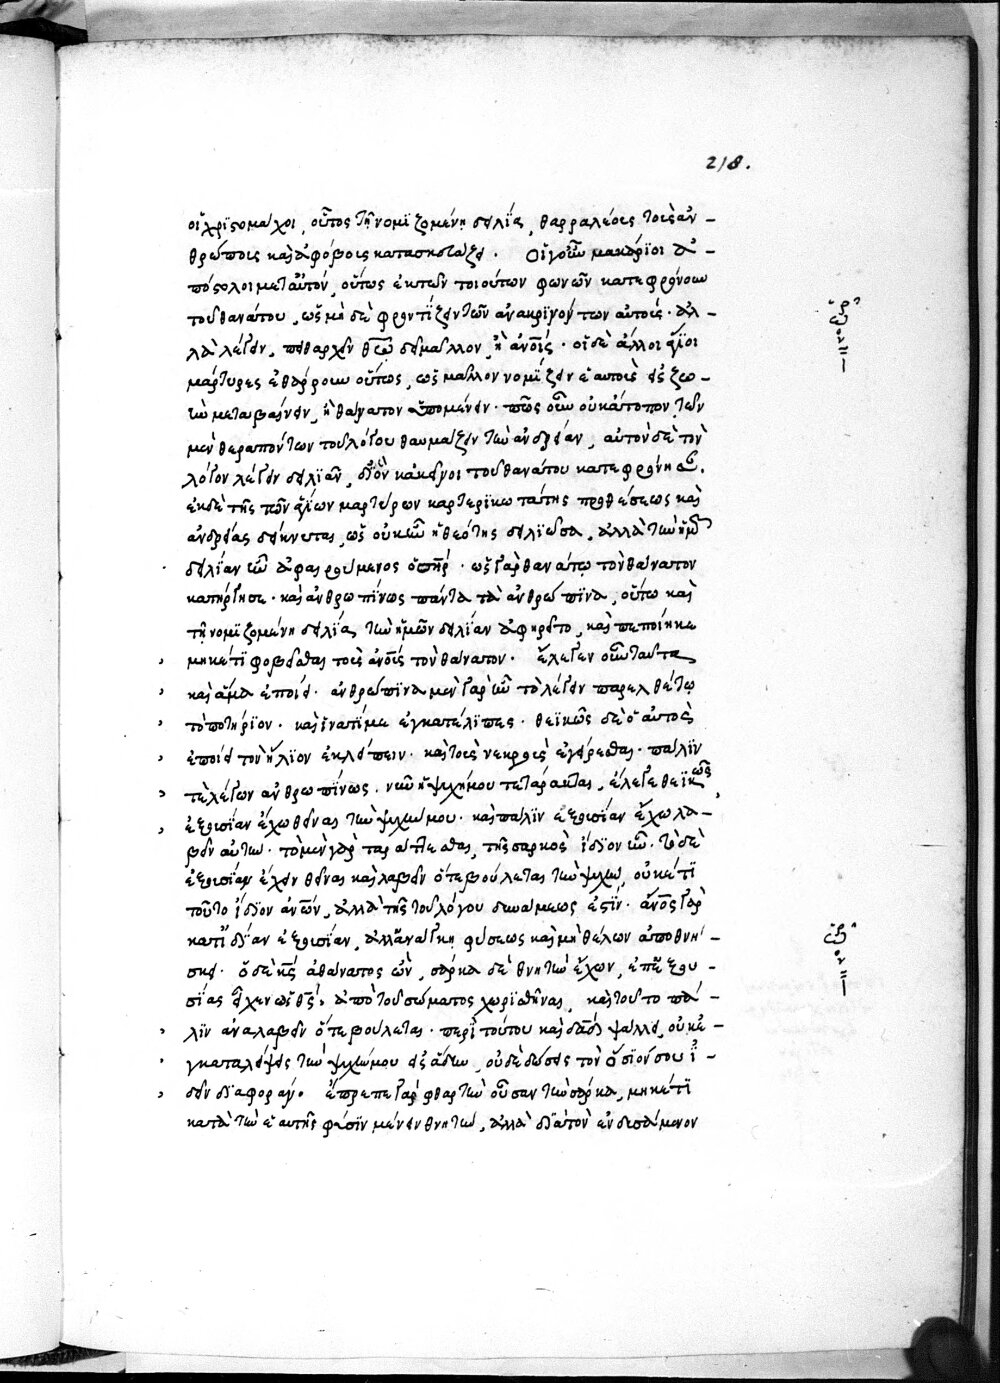 218.
οἱ χριστομάχοι, οὗτος τῇ νομιζομένῃ δειλίᾳ, θαρραλέους τοὺς ἀν-
θρώπους καὶ ἀφόβους κατασκευάζει. Οἱ γοῦν μακάριοι ἀ-
πόστολοι μετ' αὐτὸν, οὕτως ἐκ τῶν τοιούτων φωνῶν κατεφρόνουν
τοῦ θανάτου, ὡς μὴ δὲ φροντίζειν τῶν ἀνακρινόντων αὐτούς. ἀλ-
λὰ λέγειν, πειθαρχεῖν θῶ δεῖ μᾶλλον, ἢ ἀνοις. οἱ δὲ ἄλλοι ἅγιοι
μάρτυρες ἐθάρρουν οὕτως, ὡς μᾶλλον νομίζειν ἑαυτοὺς εἰς ζω-
ὴν μεταβαίνειν, ἢ θάνατον ὑπομένειν. πῶς οὖν οὐκ ἄτοπον, τῶν
μὲν θεραπόντων τοῦ λόγου θαυμάζειν τὴν ἀνδρείαν, αὐτὸν δὲ τὸν
λόγον λέγειν δειλιᾶν, δι' ὃν κἀκεῖνοι τοῦ θανάτου κατεφρόνησαν.
ἐκ δὲ τῆς τῶν ἁγίων μαρτύρων καρτερικωτάτης προθέσεως καὶ
ἀνδρείας δείκνυται, ὡς οὐκ ἦν ἡ θεότης δειλιῶσα, ἀλλὰ τὴν ἡμῶν
δειλίαν ἦν ἀφαιρούμενος ὁ σωτήρ. ὡς γὰρ θανάτῳ τὸν θάνατον
κατήργησε. καὶ ἀνθρωπίνως πάντα τὰ ἀνθρώπινα, οὕτω καὶ
τῇ νομιζομένῃ δειλίᾳ τὴν ἡμῶν δειλίαν ἀφῃρεῖτο, καὶ πεποίηκε
μηκέτι φοβεῖσθαι τοὺς ἀνους τὸν θάνατον. ἔλεγεν οὖν ταῦτα
καὶ ἅμα ἐποίει. ἀνθρώπινα μὲν γὰρ ἦν τὸ λέγειν παρελθέτω
τὸ ποτήριον. καὶ ἱνατί με ἐγκατέλιπες. θεϊκῶς δὲ ὁ αὐτὸς
ἐποίει τὸν ἥλιον ἐκλείπειν. καὶ τοὺς νεκροὺς ἐγείρεσθαι. πάλιν
τε λέγων ἀνθρωπίνως. νῦν ἡ ψυχή μου τετάρακται, ἔλεγε θεϊκῶς
ἐξουσίαν ἔχω θεῖναι τὴν ψυχήν μου. καὶ πάλιν ἐξουσίαν ἔχω λα-
βεῖν αὐτήν. τὸ μὲν γὰρ ταράττεσθαι, τῆς σαρκὸς ἴδιον ἦν. τὸ δὲ
ἐξουσίαν ἔχειν θεῖναι καὶ λαβεῖν ὅτε βούλεται τὴν ψυχὴν, οὐκέτι
τοῦτο ἴδιον ἀνων, ἀλλὰ τῆς τοῦ λόγου δυνάμεως ἐστίν. ἄνος γὰρ
κατ' ἰδίαν ἐξουσίαν, ἀλλ' ἀνάγκῃ φύσεως καὶ μὴ θέλων ἀποθνή-
σκει. ὁ δὲ κς ἀθάνατος ὢν, σάρκα δὲ θνητὴν ἔχων, ἐπ' ἐξου-
σίας εἶχεν ὡς θς, ἀπὸ τοῦ σώματος χωρισθῆναι, καὶ τοῦτο πά-
λιν ἀναλαβεῖν ὅτε βούλεται. περὶ τούτου καὶ δαδ ψάλλει, οὐκ ἐ-
γκαταλείψεις τὴν ψυχήν μου εἰς ᾅδην, οὐδὲ δώσεις τὸν ὅσιόν σου ἰ-
δεῖν διαφοράν. ἔπρεπε γὰρ φθαρτὴν οὖσαν τὴν σάρκα, μηκέτι
κατὰ τὴν ἑαυτῆς φύσιν μένειν θνητὴν, ἀλλὰ διὰ τὸν ἐνδυσάμενον